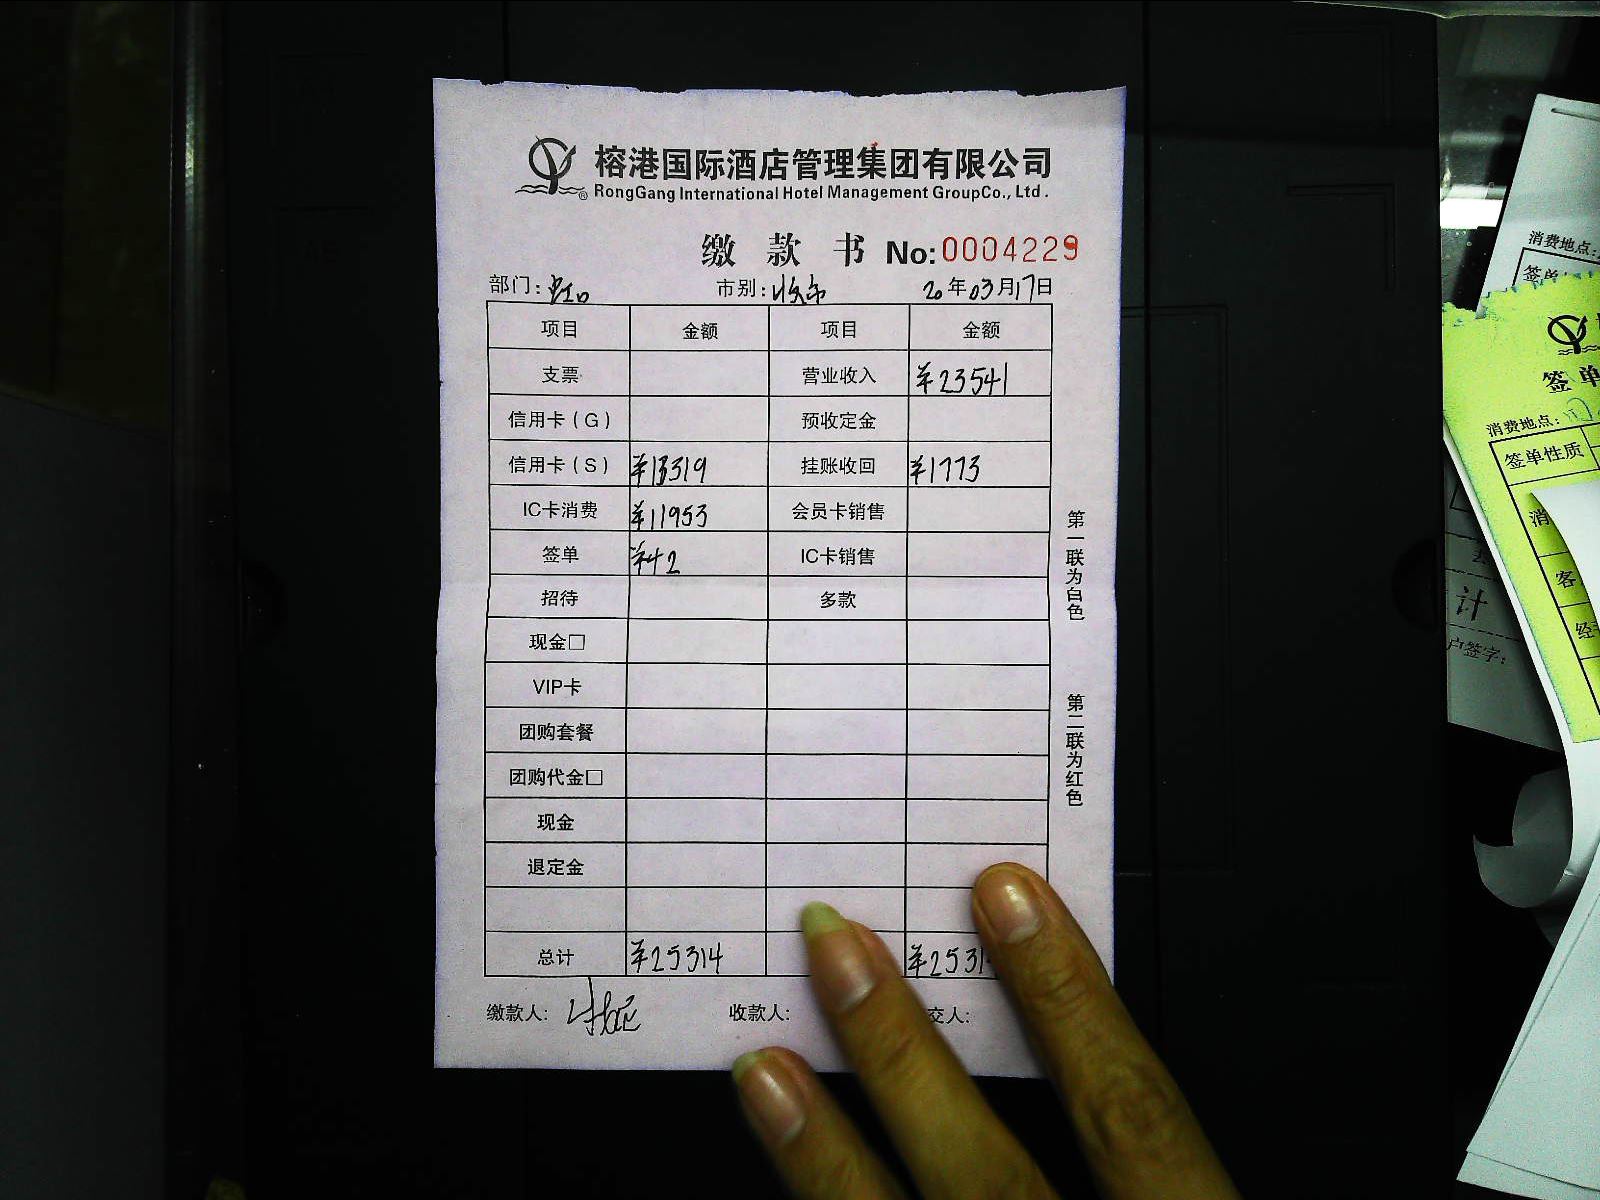 榕港国际酒店管理集团有限公司
RongGang International Hotel Management GroupCo., Ltd.
缴款书 No:0004229
部门:虹口 市别: 20年03月17日
项目 金额 项目 金额
支票 营业收入 ¥23541
信用卡(G) 预收定金
信用卡(S) ¥13319 挂账收回 ¥1773
IC卡消费 ¥11953 会员卡销售
签单 ¥42 IC卡销售
招待 多款
现金□
VIP卡
团购套餐
团购代金□
现金
退定金
总计 ¥25314 ¥2531
缴款人: 收款人: 交人:
第一联为白色
第二联为红色
消费地点:
签单
签单
消费地点:
签单性质
消
客
经
计
户签字: